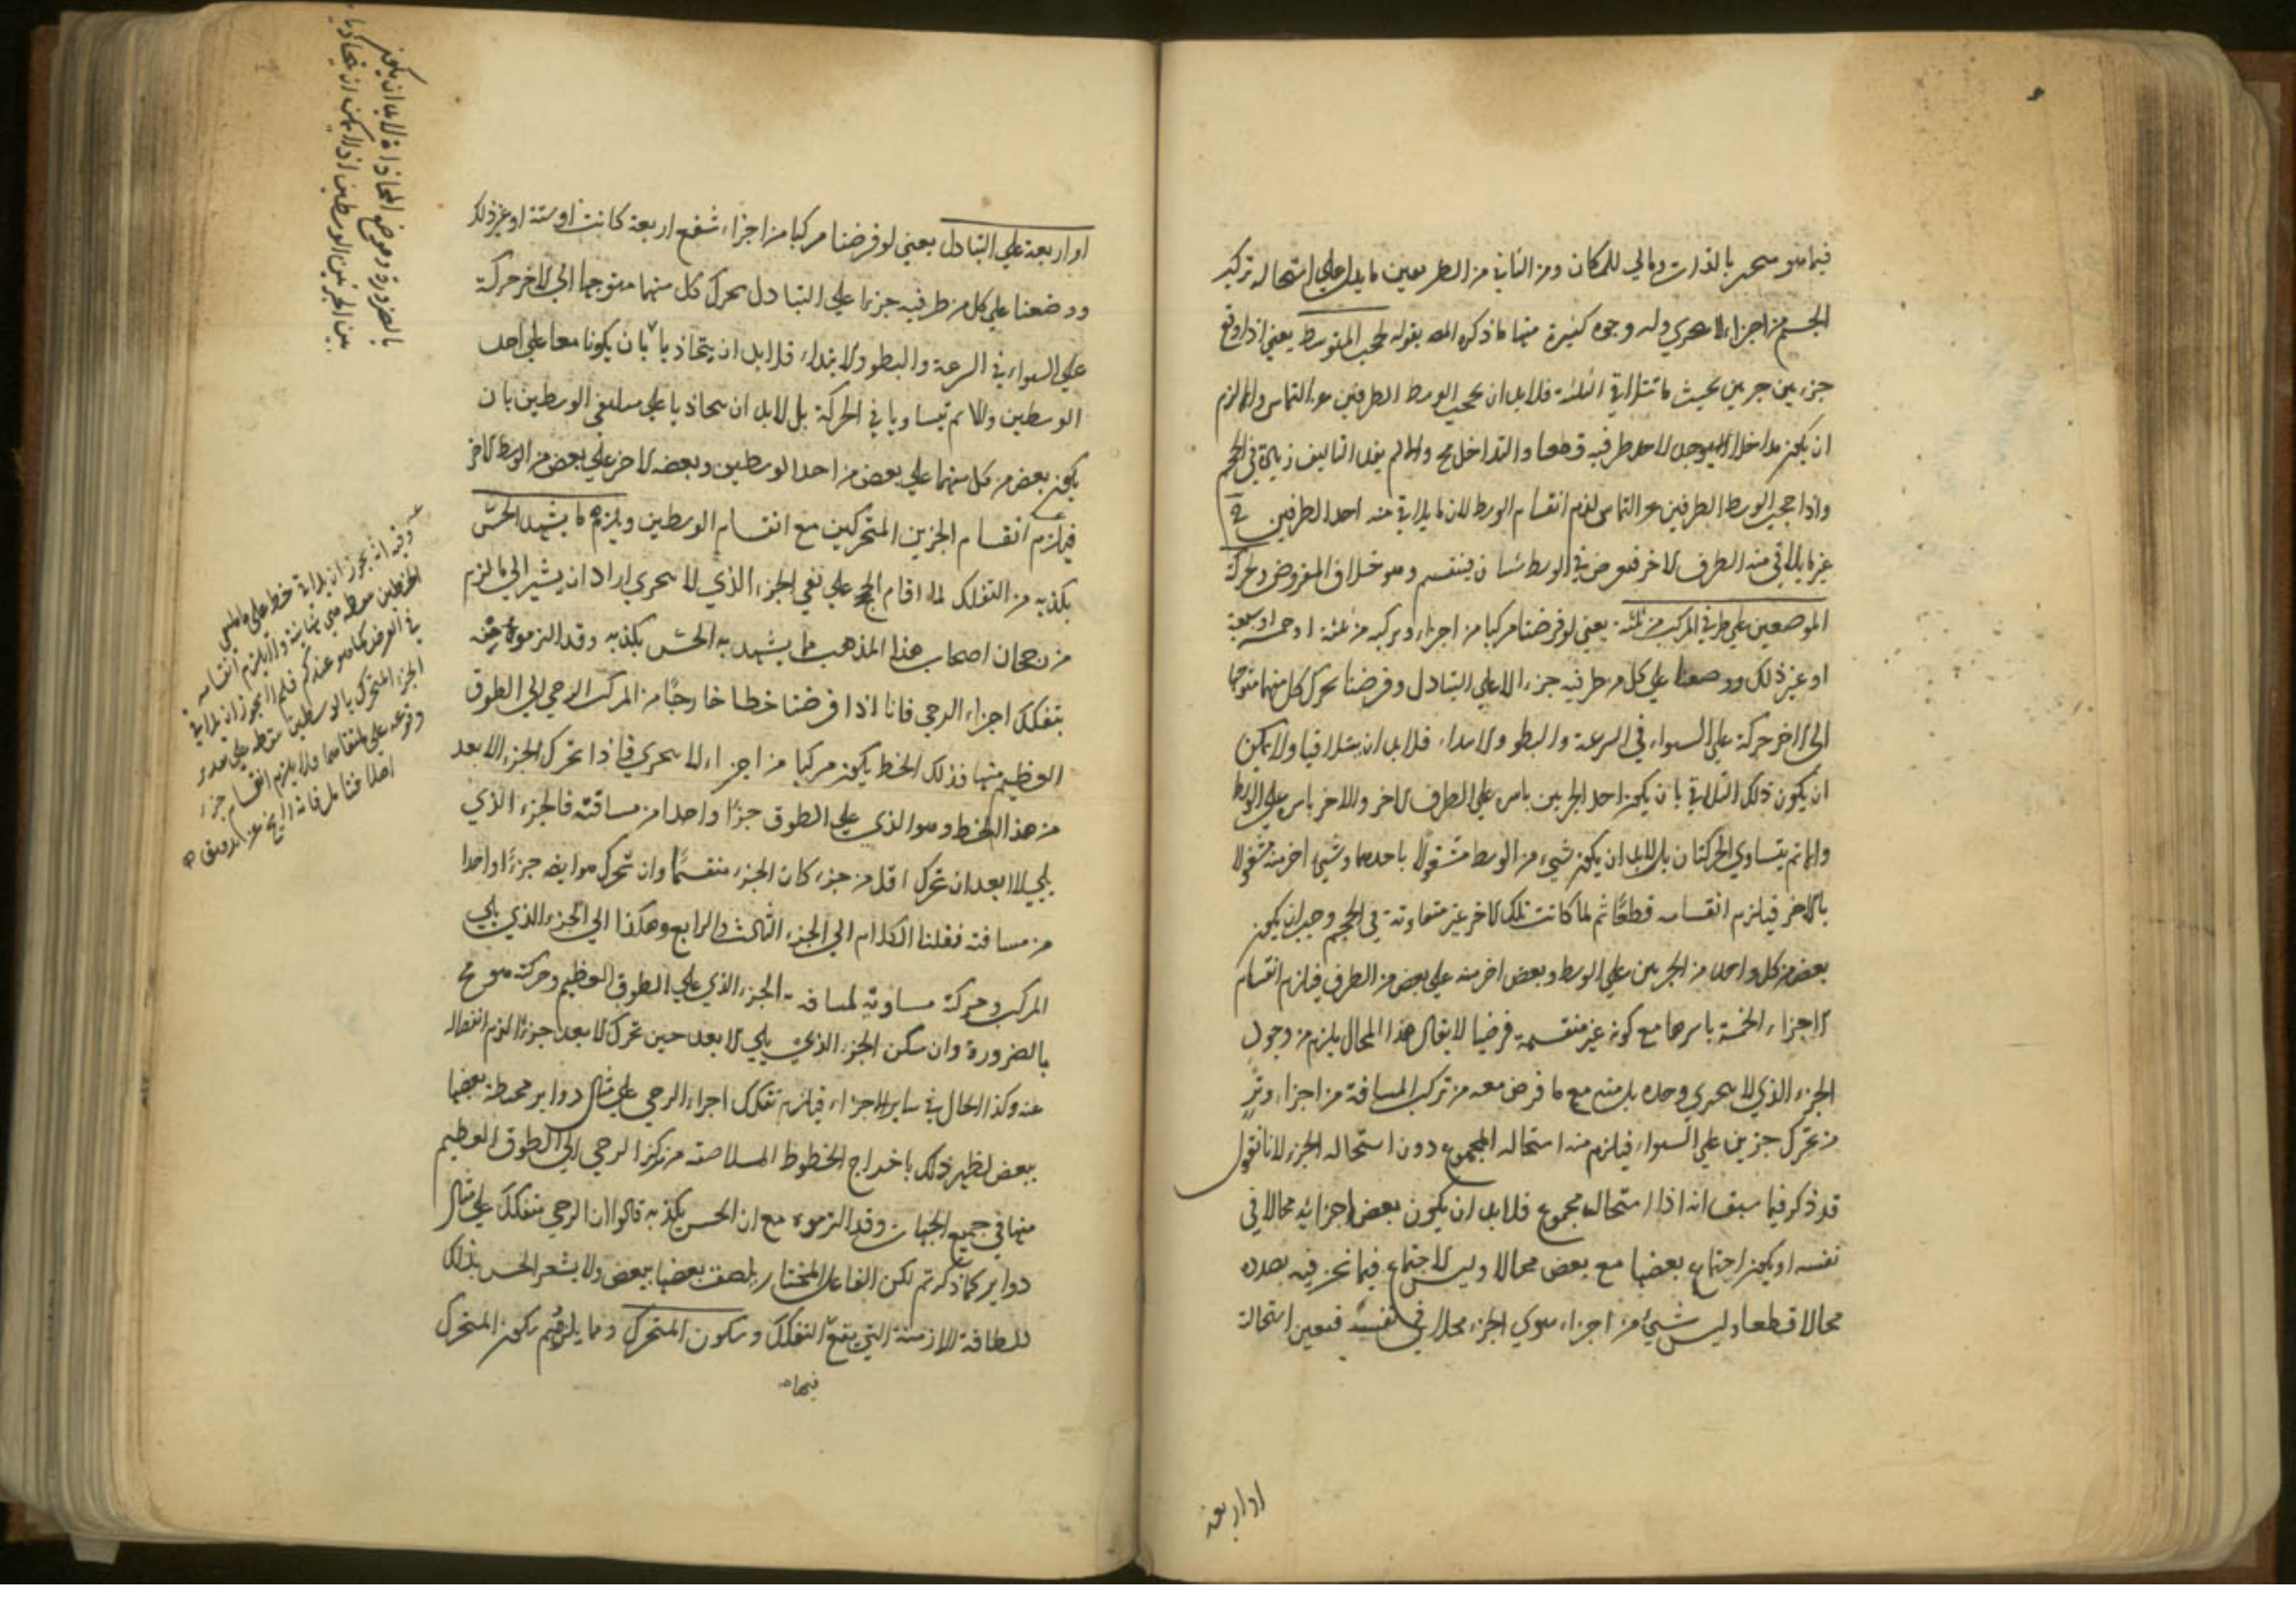 فيما هو متحيز بالذات ومالي للمكان ومن الثاني من الطريقين ما يدل على استحالة تركب
الجسم من اجزاء لا تتجزى وله وجوه كثيرة منها ما ذكره المصـ بقوله لحجب المتوسط يعني اذا وقع
جزء بين جزءين بحيث تتلاقى الثلثة فلابد ان يحجب الوسط الطرفين عن التماس والا لزم
ان يكون مداخلا لاحد طرفيه قطعا والتداخل مح والا لم يفد التاليف زيادة في الحجم
واذا حجب الوسط الطرفين عن التماس لزم انقسام الوسط لان ما يلاقي منه احد الطرفين
غير ما يلاقي منه الطرف الاخر فيعرض في الوسط شيئان فينقسم وهو خلاف المفروض ولحركة
الموضوعين على طرفي المركب من ثلثة يعني لو فرضنا مركبا من اجزاء وتركبه من ثلثة او خمسة او سبعة
او غير ذلك ووضعنا على كل من طرفيه جزء الا على التبادل وفرضنا تحرك كل منهما متوجها
الى الاخر حركة على السواء في السرعة والبطو والابتداء فلابد ان يتلاقيا ولا يمكن
ان يكون ذلك التلاقي بان يكون احد الجزءين باسره على الطرف الاخر والاخر باسره على الوسط
والا لم يتساوى الحركتان بل لابد ان يكون شيء من الوسط مشغولا باحدهما وشيء اخر منه مشغولا
بالاخر فيلزم انقسامه قطعًا ثم لما كانت تلك الاخر غير متفاوتة في الحجم وجب ان يكون
بعض من كل واحد من الجزءين على الوسط وبعض اخر منه على بعض من الطرف فيلزم انقسام
الاجزاء الخمسة باسرها مع كونه غير منقسمة فرضيا لا يقال هذا المحال يلزم من وجود
الجزء الذي لا يتجزى وحده بل منه مع ما فرض معه من تركب المسافة من اجزاء وتر
من تحرك جزين على السواء فيلزم منه استحالة المجموع دون استحالة الجزء لانا نقول
قد ذكر فيما سبق انه اذا استحاله مجموع فلابد ان يكون بعض اجزائه محالا في
نفسه او يكون اجتماع بعضها مع بعض محالا وليس الاجتماع فيما نحن فيه بصدده
محالا قطعا وليس شيء من اجزاء سوى الجزء محالا في نفسه فتعين استحالة
او اربعة
او اربعة على التبادل يعني لو فرضنا مركبا من اجزاء شفع اربعة كانت او ستة او غير ذلك
ووضعنا على كل من طرفيه جزءا على التبادل تحرك كل منهما متوجها الى الاخر حركة
على السواء في السرعة والبطو والابتداء فلابد ان يتحاذيا لا بان يكونا معا على احد
الوسطين والا لم يتساويا في الحركة بل لابد ان يتحاذيا على ملتقى الوسطين بان
يكون بعض من كل منهما على بعض من احد الوسطين وبعضه الاخر على بعض من الوسط الاخر
فيلزم انقسام الجزين المتحركين مع انقسام الوسطين ويلزم ما يشهد الحسّ
بكذبه من التفكك لما اقام الحجج على نفي الجزء الذي لا يتجزى اراد ان يشير الى ما لزم
من اصحاب هذا المذهب مما يشهد به الحسّ بكذبه وقد التزموه فمنه
تفكك اجزاء الرحى فانا اذا فرضنا خطا خارجًا من المركز الرحى الى الطوق
العظيم منها فذلك الخط يكون مركبا من اجزاء لا تتجزى فاذا تحرك الجزء الابعد
من هذا الخط وهو الذي على الطوق جزًا واحدا من مسافته فالجزء الذي
يلي الابعد ان تحرك اقل من جزء كان الجزء منقسمًا وان تحرك هو ايضه جزءًا واحدا
من مسافته فنقلنا الكلام الى الجزء الثالث والرابع وهكذا الى الجزء الذي يلي
المركز وحركة مساوية لمسافة الجزء الذي على الطوق العظيم وحركته هو مح
بالضرورة وان سكن الجزء الذي يلي الابعد حين تحرك الابعد جزءًا لزم انفصاله
عنه وكذا الحال في ساير الاجزاء فيلزم تفكك اجزاء الرحى على مثال دواير محيطة بعضها
ببعض لظهير ذلك باخراج الخطوط المتلاصقة من مركز الرحى الى الطوق العظيم
منها في جميع الجهات وقد التزموه مع ان الحس يكذبه قالوا ان الرحى تتفكك على مثال
دواير كما ذكرتم لكن الفاعل المختار يلصق بعضها ببعض ولا يشعر الحس بذلك
للطافة الازمنة التي يقع التفكك وسكون المتحرك ومما يلزمهم سكون المتحرك
فيها
وفيه انه يجوز ان يلاقي خط على ملتقى
الخطين
في العرض كما هو عندكم فلم لا يجوز ان يلاقي
الجزء المتحرك بالوسطين
وقوعه على ملتقاهما ولا يلزم انقسام جزء
اصلا
بالضرورة وموضع المحاذاة لابد ان يكون
بين الجزئين الوسطين اذ لا يمكن ان يتحاذيا